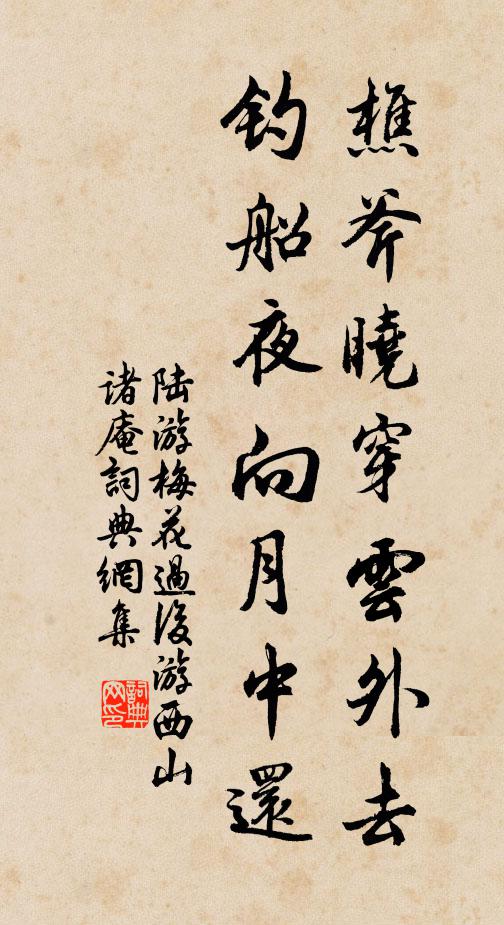 樵斧曉穿雲外去
釣船夜向月中還
陆游梅花過後游西山
诸庵詞典網集
詞典網印